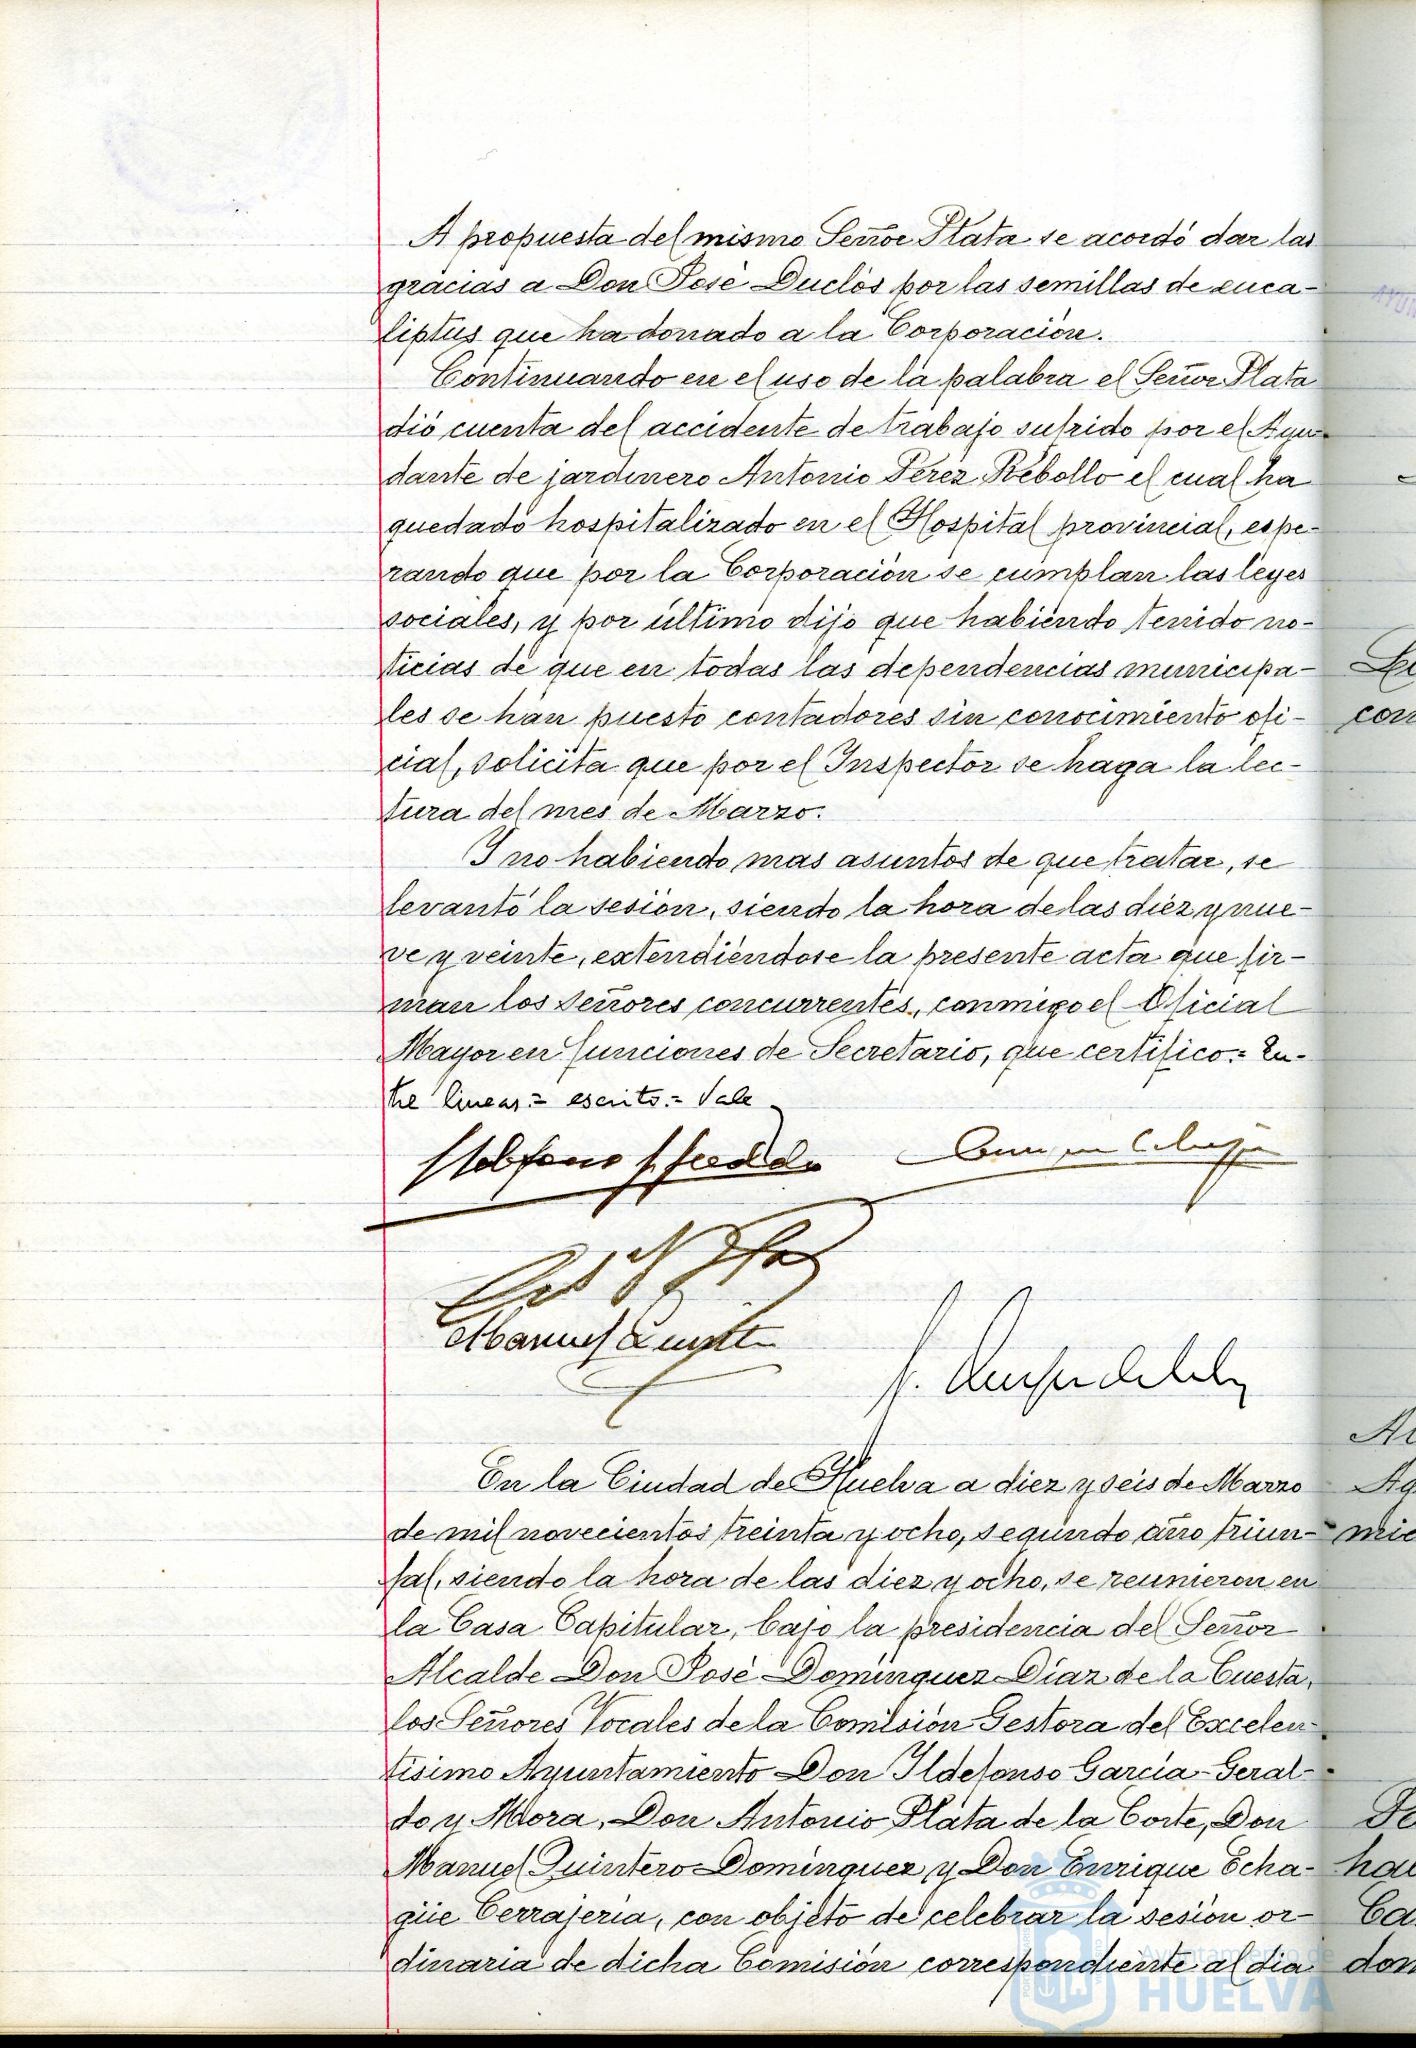 A propuesta del mismo Señor Plata se acordó dar las
gracias a Don José Duclós por las semillas de euca-
liptus que ha donado a la Corporación.
Continuando en el uso de la palabra el Señor Plata
dió cuenta del accidente de trabajo sufrido por el Ayu-
dante de jardinero Antonio Pérez Rebollo el cual ha
quedado hospitalizado en el Hospital provincial, espe-
rando que por la Corporación se cumplan las leyes
sociales, y por último dijo que habiendo tenido no-
ticias de que en todas las dependencias municipa-
les se han puesto contadores sin conocimiento ofi-
cial, solicita que por el Inspector se haga la lec-
tura del mes de Marzo.
Y no habiendo mas asuntos de que tratar, se
levantó la sesión, siendo la hora de las diez y nue-
ve y veinte, extendiéndose la presente acta que fir-
man los Señores concurrentes, conmigo el Oficial
Mayor en funciones de Secretario, que certifico.= En-
tre lineas.= escrito.= Vale
Manuel Quintero
En la Ciudad de Huelva a diez y seis de Marzo
de mil novecientos treinta y ocho, segundo año triun-
fal, siendo la hora de las diez y ocho, se reunieron en
la Casa Capitular, bajo la presidencia del Señor
Alcalde Don José Domínguez Díaz de la Cuesta,
los Señores Vocales de la Comisión Gestora del Excelen-
tísimo Ayuntamiento Don Ildefonso García-Geral-
do y Mora, Don Antonio Plata de la Corte, Don
Manuel Quintero Domínguez y Don Enrique Echa-
güe Cerrajería, con objeto de celebrar la sesión or-
dinaria de dicha Comisión correspondiente al dia
Ayuntamiento de
HUELVA